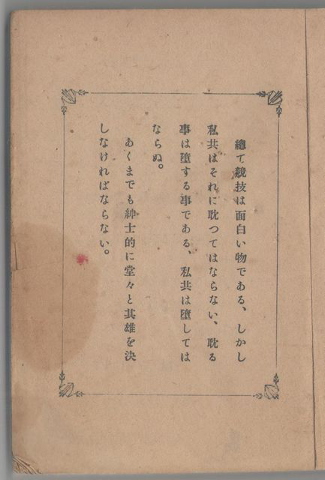 總て競技は面白い物である、しかし
私共はそれに耽つてはならない、耽る
事は墮する事である、私共は墮しては
ならぬ。
あくまでも紳士的に堂々と其雄を決
しなければならない。